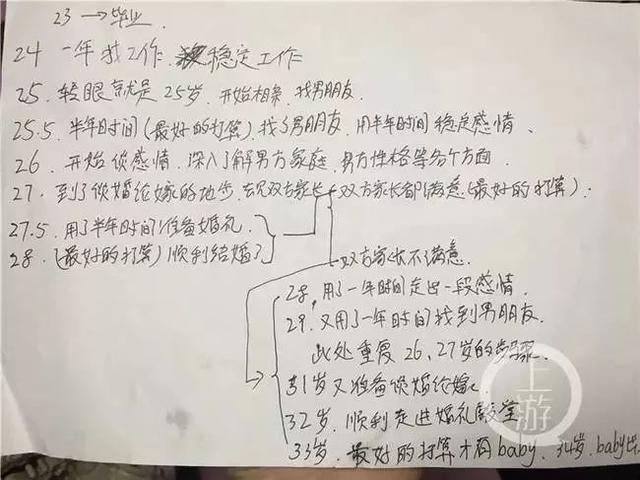 23 → 毕业.
24 一年找工作. 稳定工作
25. 转眼就是25岁. 开始相亲. 找男朋友.
25.5. 半年时间(最好的打算)找了男朋友. 用半年时间稳定感情.
26. 开始谈感情. 深入了解男方家庭. 男方性格等各个方面.
27. 到了谈婚论嫁的地步. 去见双方家长 双方家长都满意(最好的打算).
27.5. 用了半年时间准备婚礼.
28. (最好的打算) 顺利结婚了
双方家长不满意.
28. 用了一年时间走出一段感情.
29. 又用了一年时间找到男朋友.
此处重复26、27岁的步骤.
31岁又准备谈婚论嫁.
32岁. 顺利走进婚礼殿堂
33岁. 最好的打算才有baby. 34岁. baby出
上游